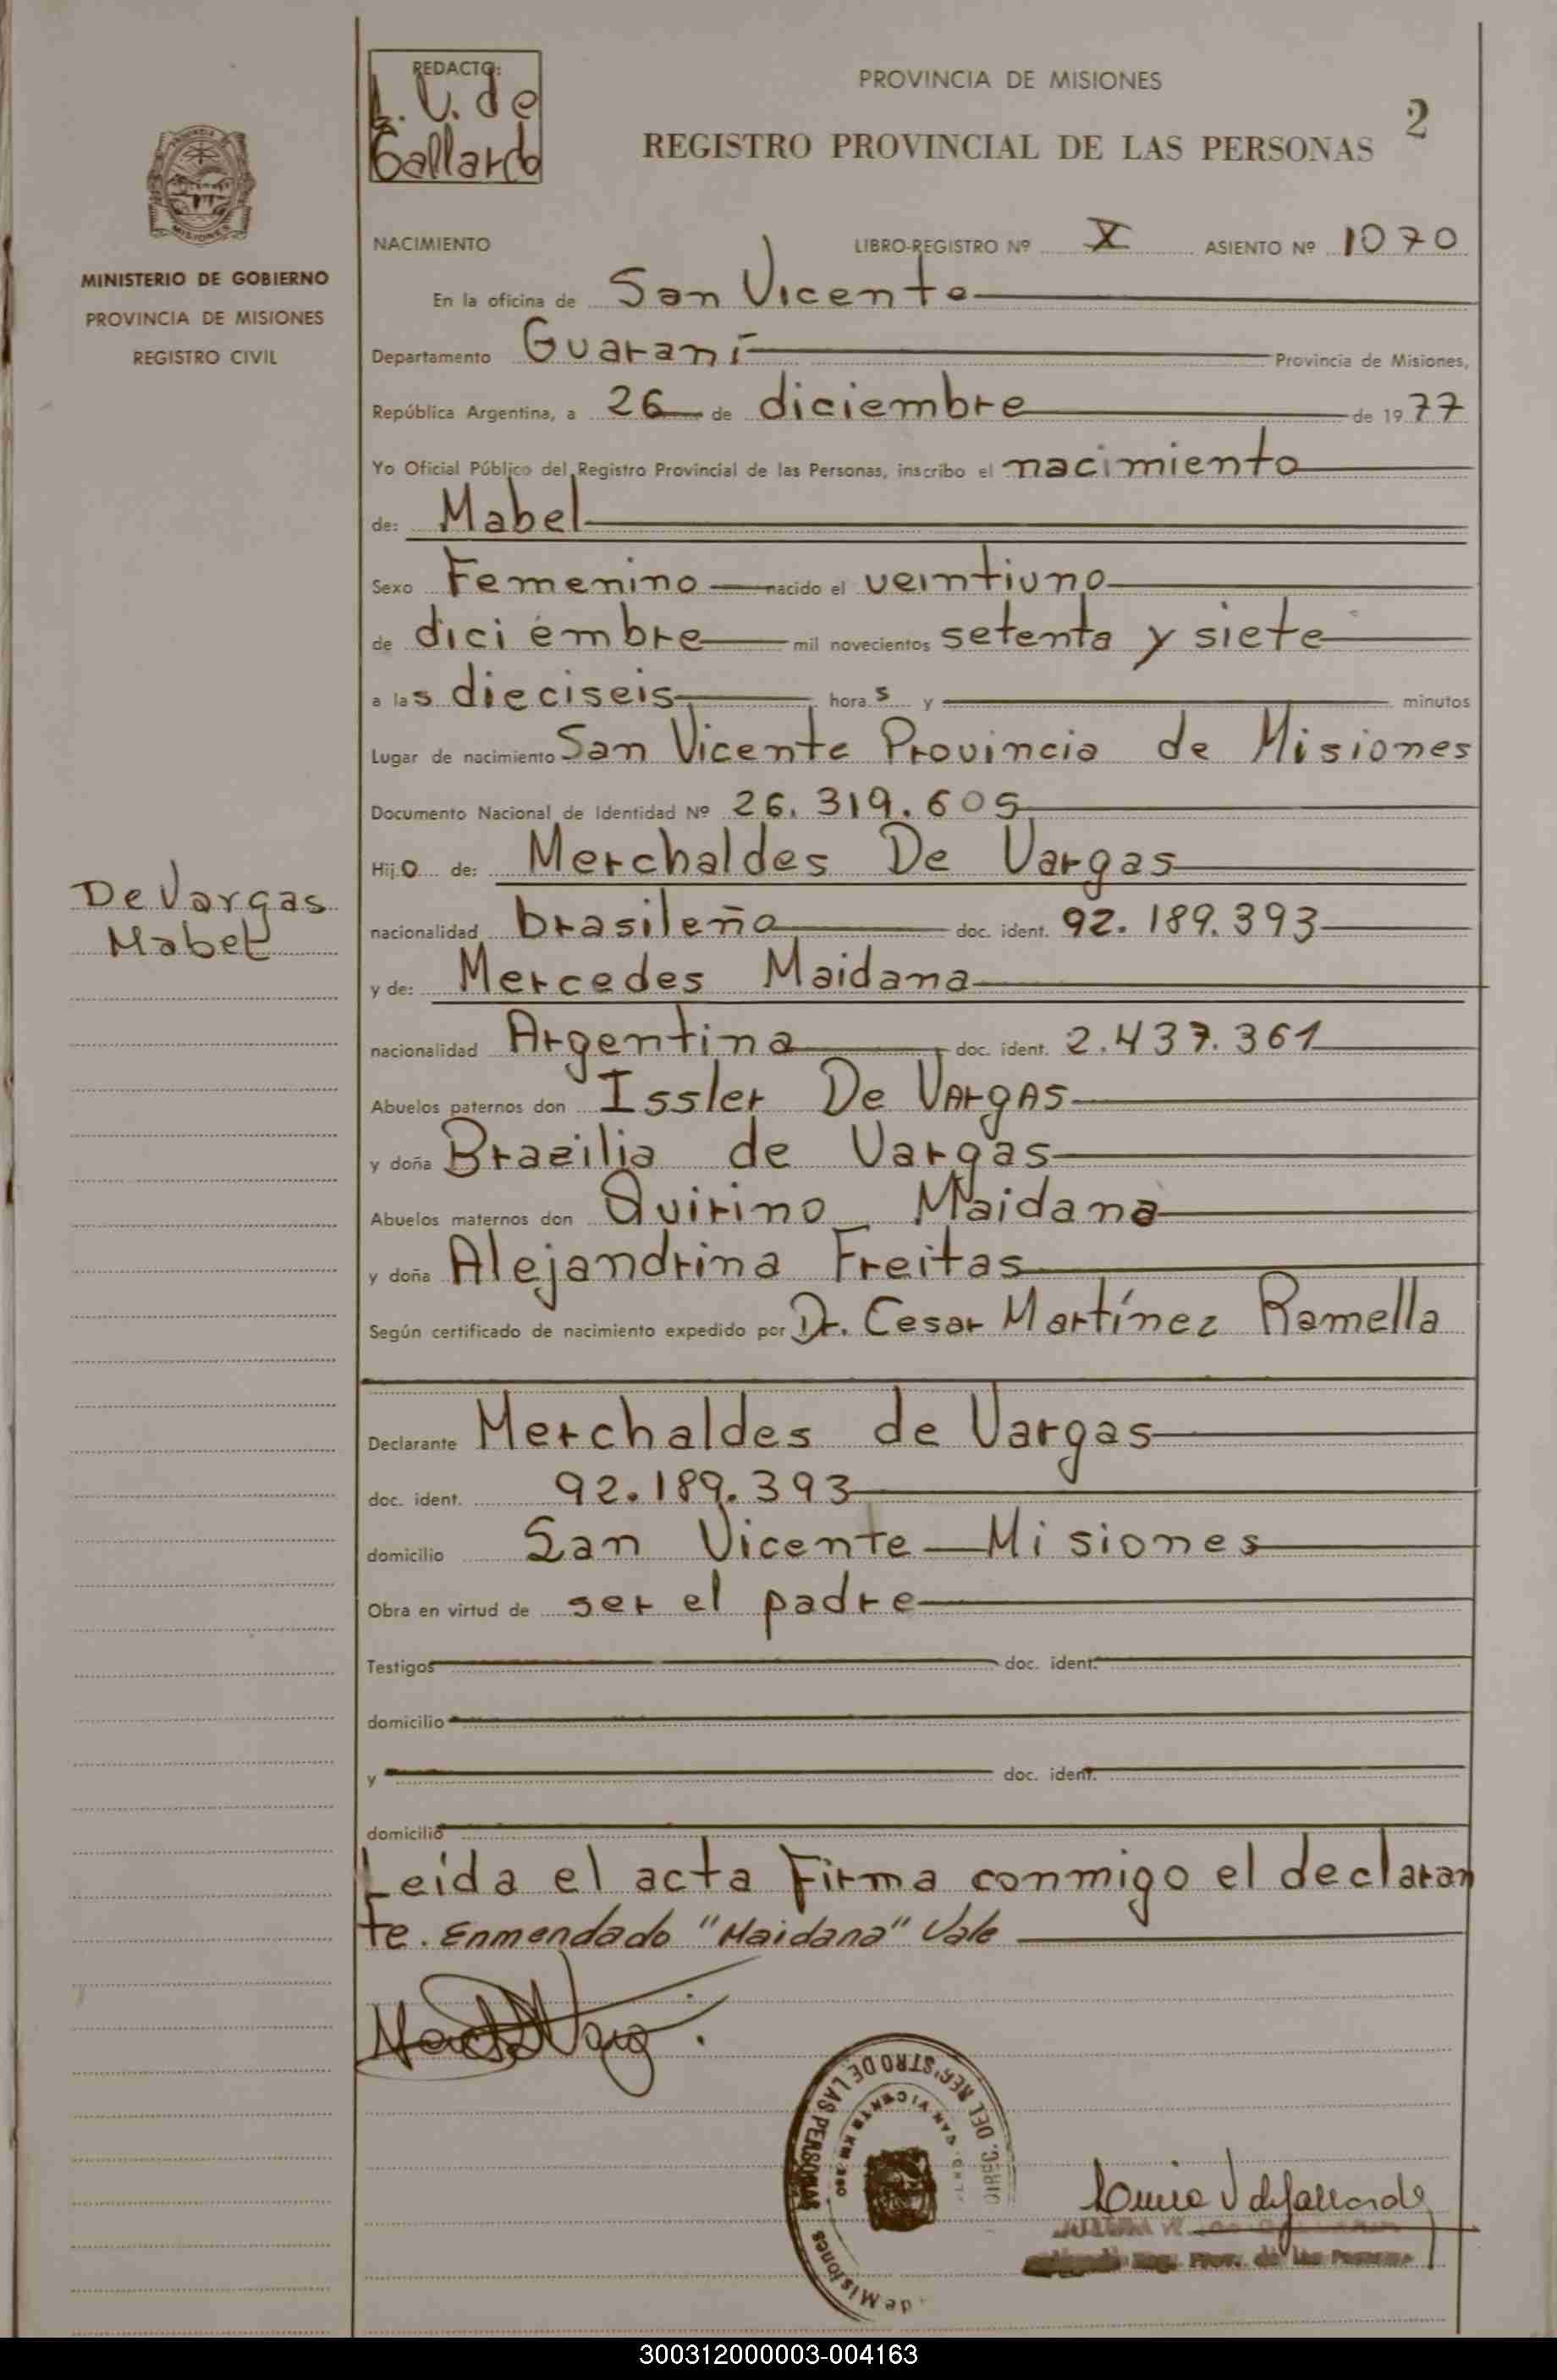 REDACTO:
L. V. de
Gallardo
PROVINCIA DE MISIONES
2
REGISTRO PROVINCIAL DE LAS PERSONAS
MISIONES
MINISTERIO DE GOBIERNO
PROVINCIA DE MISIONES
REGISTRO CIVIL
NACIMIENTO LIBRO-REGISTRO Nº X ASIENTO Nº 1070
En la oficina de San Vicente
Departamento Guaraní Provincia de Misiones,
República Argentina, a 26 de diciembre de 1977
Yo Oficial Público del Registro Provincial de las Personas, inscribo el nacimiento
de: Mabel
Sexo Femenino nacido el veintiuno
de diciembre mil novecientos setenta y siete
a las dieciseis horas y minutos
Lugar de nacimiento San Vicente Provincia de Misiones
Documento Nacional de Identidad Nº 26.319.605
Hijo de: Merchaldes De Vargas
De Vargas
Mabel
nacionalidad brasileña doc. ident. 92.189.393
y de: Mercedes Maidana
nacionalidad Argentina doc. ident. 2.437.361
Abuelos paternos don Issler De Vargas
y doña Brazilia de Vargas
Abuelos maternos don Quirino Maidana
y doña Alejandrina Freitas
Según certificado de nacimiento expedido por Dr. Cesar Martínez Ramella
Declarante Merchaldes de Vargas
doc. ident. 92.189.393
domicilio San Vicente - Misiones
Obra en virtud de ser el padre
Testigos doc. ident.
domicilio
y doc. ident.
domicilio
Leida el acta Firma conmigo el declaran
te. Enmendado "Maidana" Vale
DIREC. DEL REGISTRO DE LAS PERSONAS
SAN VICENTE KM
de Misiones
300312000003-004163